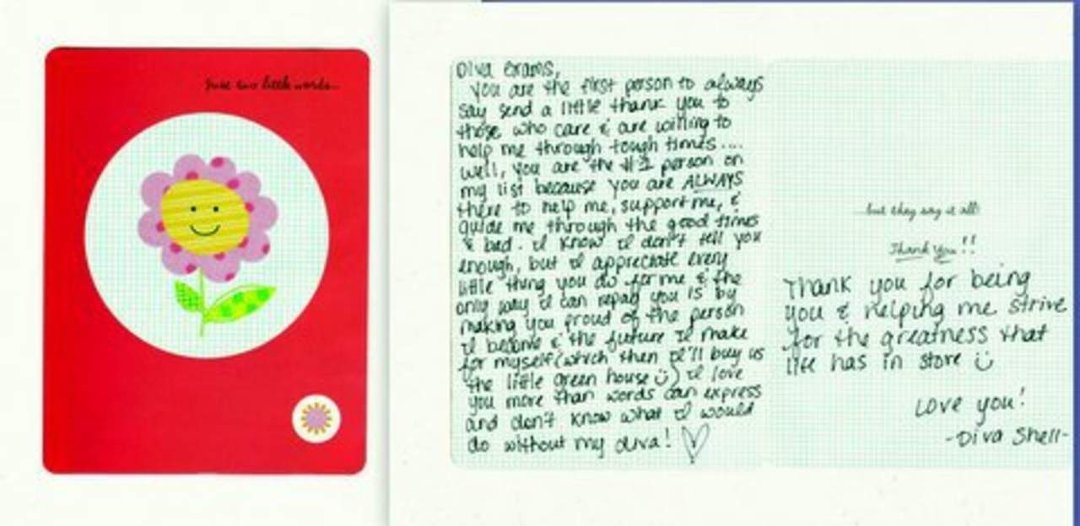 Just two little words...
Diva Grams,
You are the first person to always
say send a little thank you to
those who care & are willing to
help me through tough times....
Well, you are the #1 person on
my list because you are ALWAYS
there to help me, support me, &
guide me through the good times
& bad. I know I don't tell you
enough, but I appreciate every
little thing you do for me & the
only way I can repay you is by
making you proud of the person
I become & the future I make
for myself (which then I'll buy us
the little green house ☺) I love
you more than words can express
and don't know what I would
do without my diva! ♡
...but they say it all!
Thank You!!
Thank you for being
you & helping me strive
for the greatness that
life has in store ☺
Love you!
-Diva Shell-